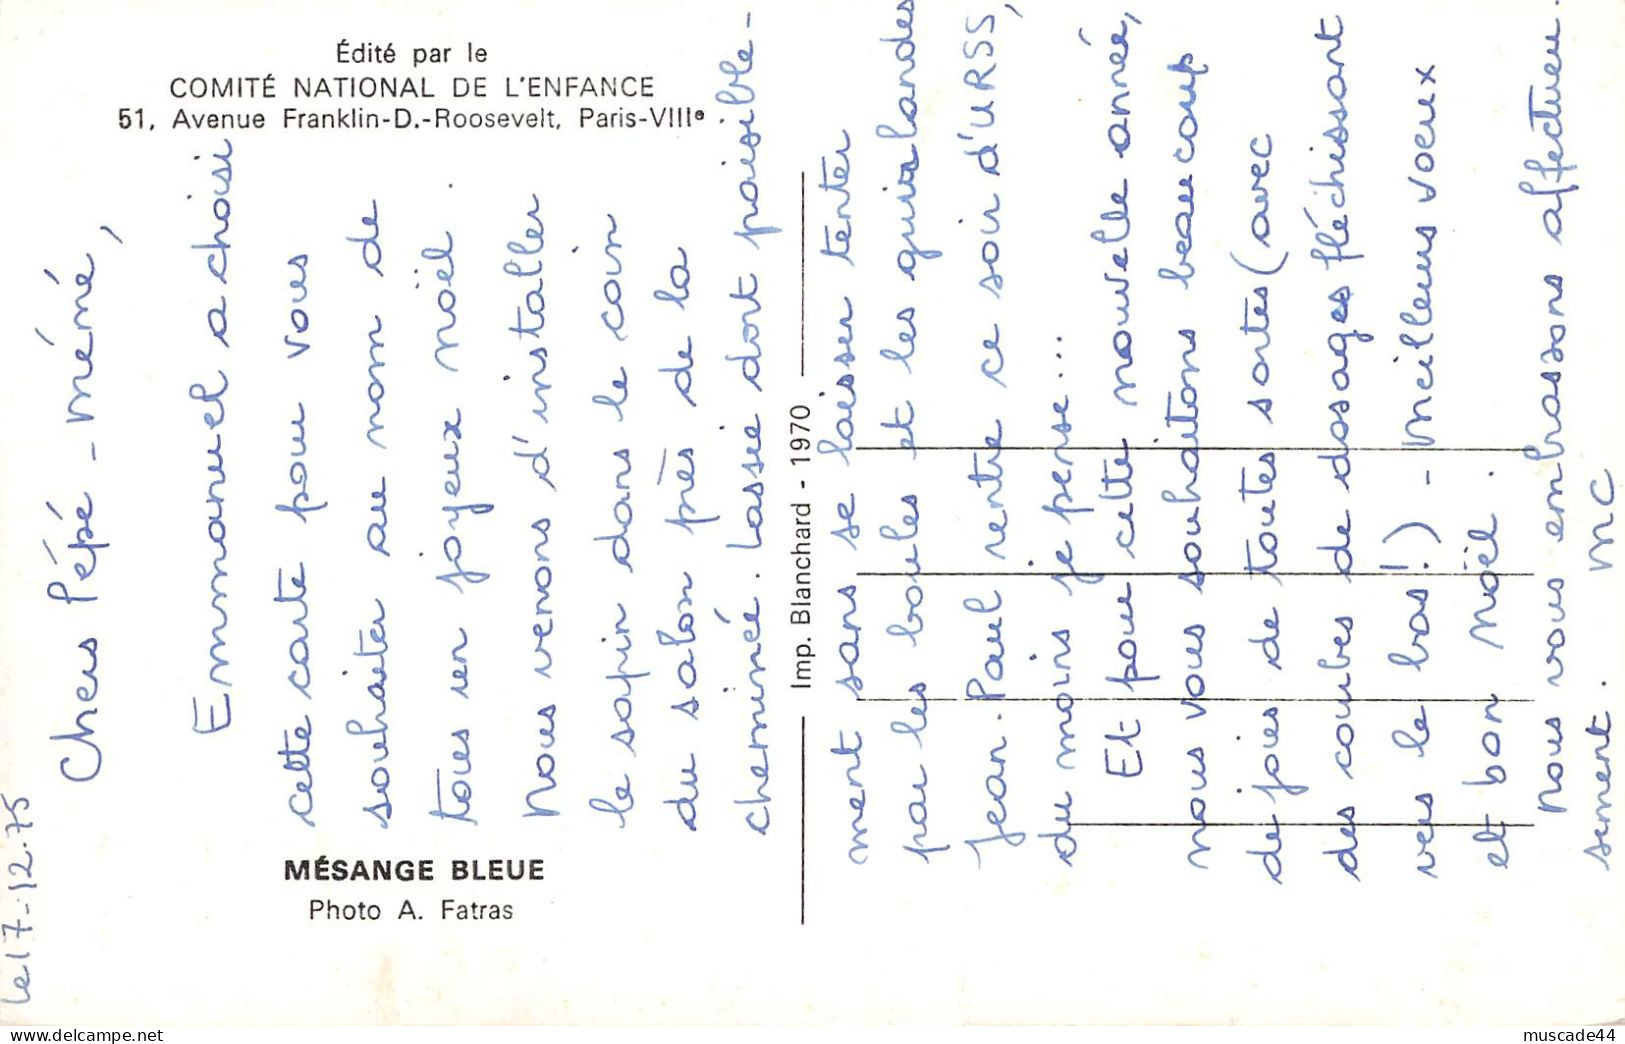 Édité par le
COMITÉ NATIONAL DE L'ENFANCE
51, Avenue Franklin-D.-Roosevelt, Paris-VIIIe
le 17-12.75
Chers Pépé - Mémé,
Emmanuel a choisi
cette carte pour vous
souhaiter au nom de
tous un joyeux noël.
Nous venons d'installer
le sapin dans le coin
du salon près de la
cheminée. Lassie dort paisible-
ment sans se laisser tenter
par les boules et les guirlandes
Jean-Paul rentre ce soir d'URSS,
du moins je pense...
Et pour cette nouvelle année,
nous vous souhaitons beaucoup
de joies de toutes sortes (avec
des courbes de dosages fléchissant
vers le bas!) - Meilleurs voeux
et bon Noël.
Nous vous embrassons affectueu-
sement. MC
MÉSANGE BLEUE
Photo A. Fatras
Imp. Blanchard - 1970
https://www.delcampe.net
muscade44